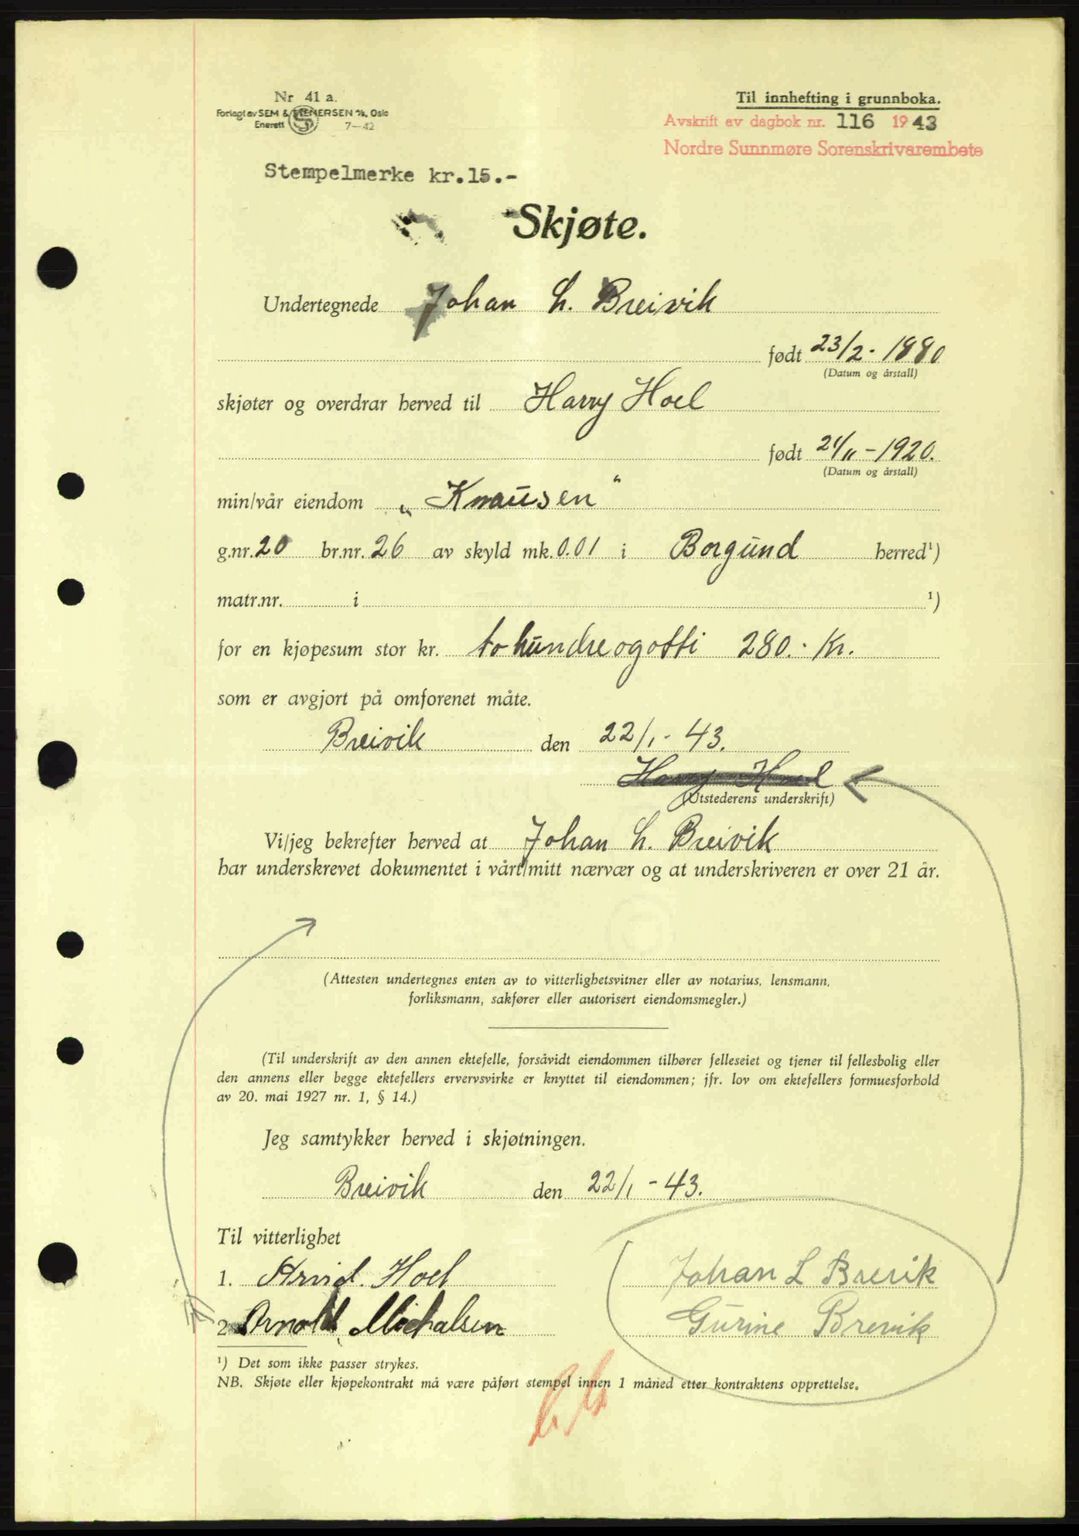 Nr 41 a.
Forlagt av SEM & STENERSEN A/S, Oslo
Enerett 7—42
Til innhefting i grunnboka.
Avskrift av dagbok nr. 116 1943
Nordre Sunnmøre Sorenskrivarembete
Stempelmerke kr.15.-
Skjøte.
Undertegnede Johan L. Breivik
født 23/2 - 1880
(Datum og årstall)
skjøter og overdrar herved til Harry Hoel
født 21/11 - 1920.
(Datum og årstall)
min/vår eiendom „Knausen"
g.nr. 20 br.nr. 26 av skyld mk. 0.01 i Borgund herred¹)
matr.nr. i ¹)
for en kjøpesum stor kr. tohundreogotti 280.- Kr.
som er avgjort på omforenet måte.
Breivik den 22/1 - 43.
Harry Hoel
(Utstederens underskrift)
Vi/jeg bekrefter herved at Johan L. Breivik
har underskrevet dokumentet i vårt/mitt nærvær og at underskriveren er over 21 år.
(Attesten undertegnes enten av to vitterlighetsvitner eller av notarius, lensmann,
forliksmann, sakfører eller autorisert eiendomsmegler.)
(Til underskrift av den annen ektefelle, forsåvidt eiendommen tilhører felleseiet og tjener til fellesbolig eller
den annens eller begge ektefellers ervervsvirke er knyttet til eiendommen; jfr. lov om ektefellers formuesforhold
av 20. mai 1927 nr. 1, § 14.)
Jeg samtykker herved i skjøtningen.
Breivik den 22/1 - 43.
Til vitterlighet
1. Arvid. Hoel
Johan L Breivik
2. Arnold Michalsen
Gurine Breivik
¹) Det som ikke passer strykes.
NB. Skjøte eller kjøpekontrakt må være påført stempel innen 1 måned etter kontraktens opprettelse.